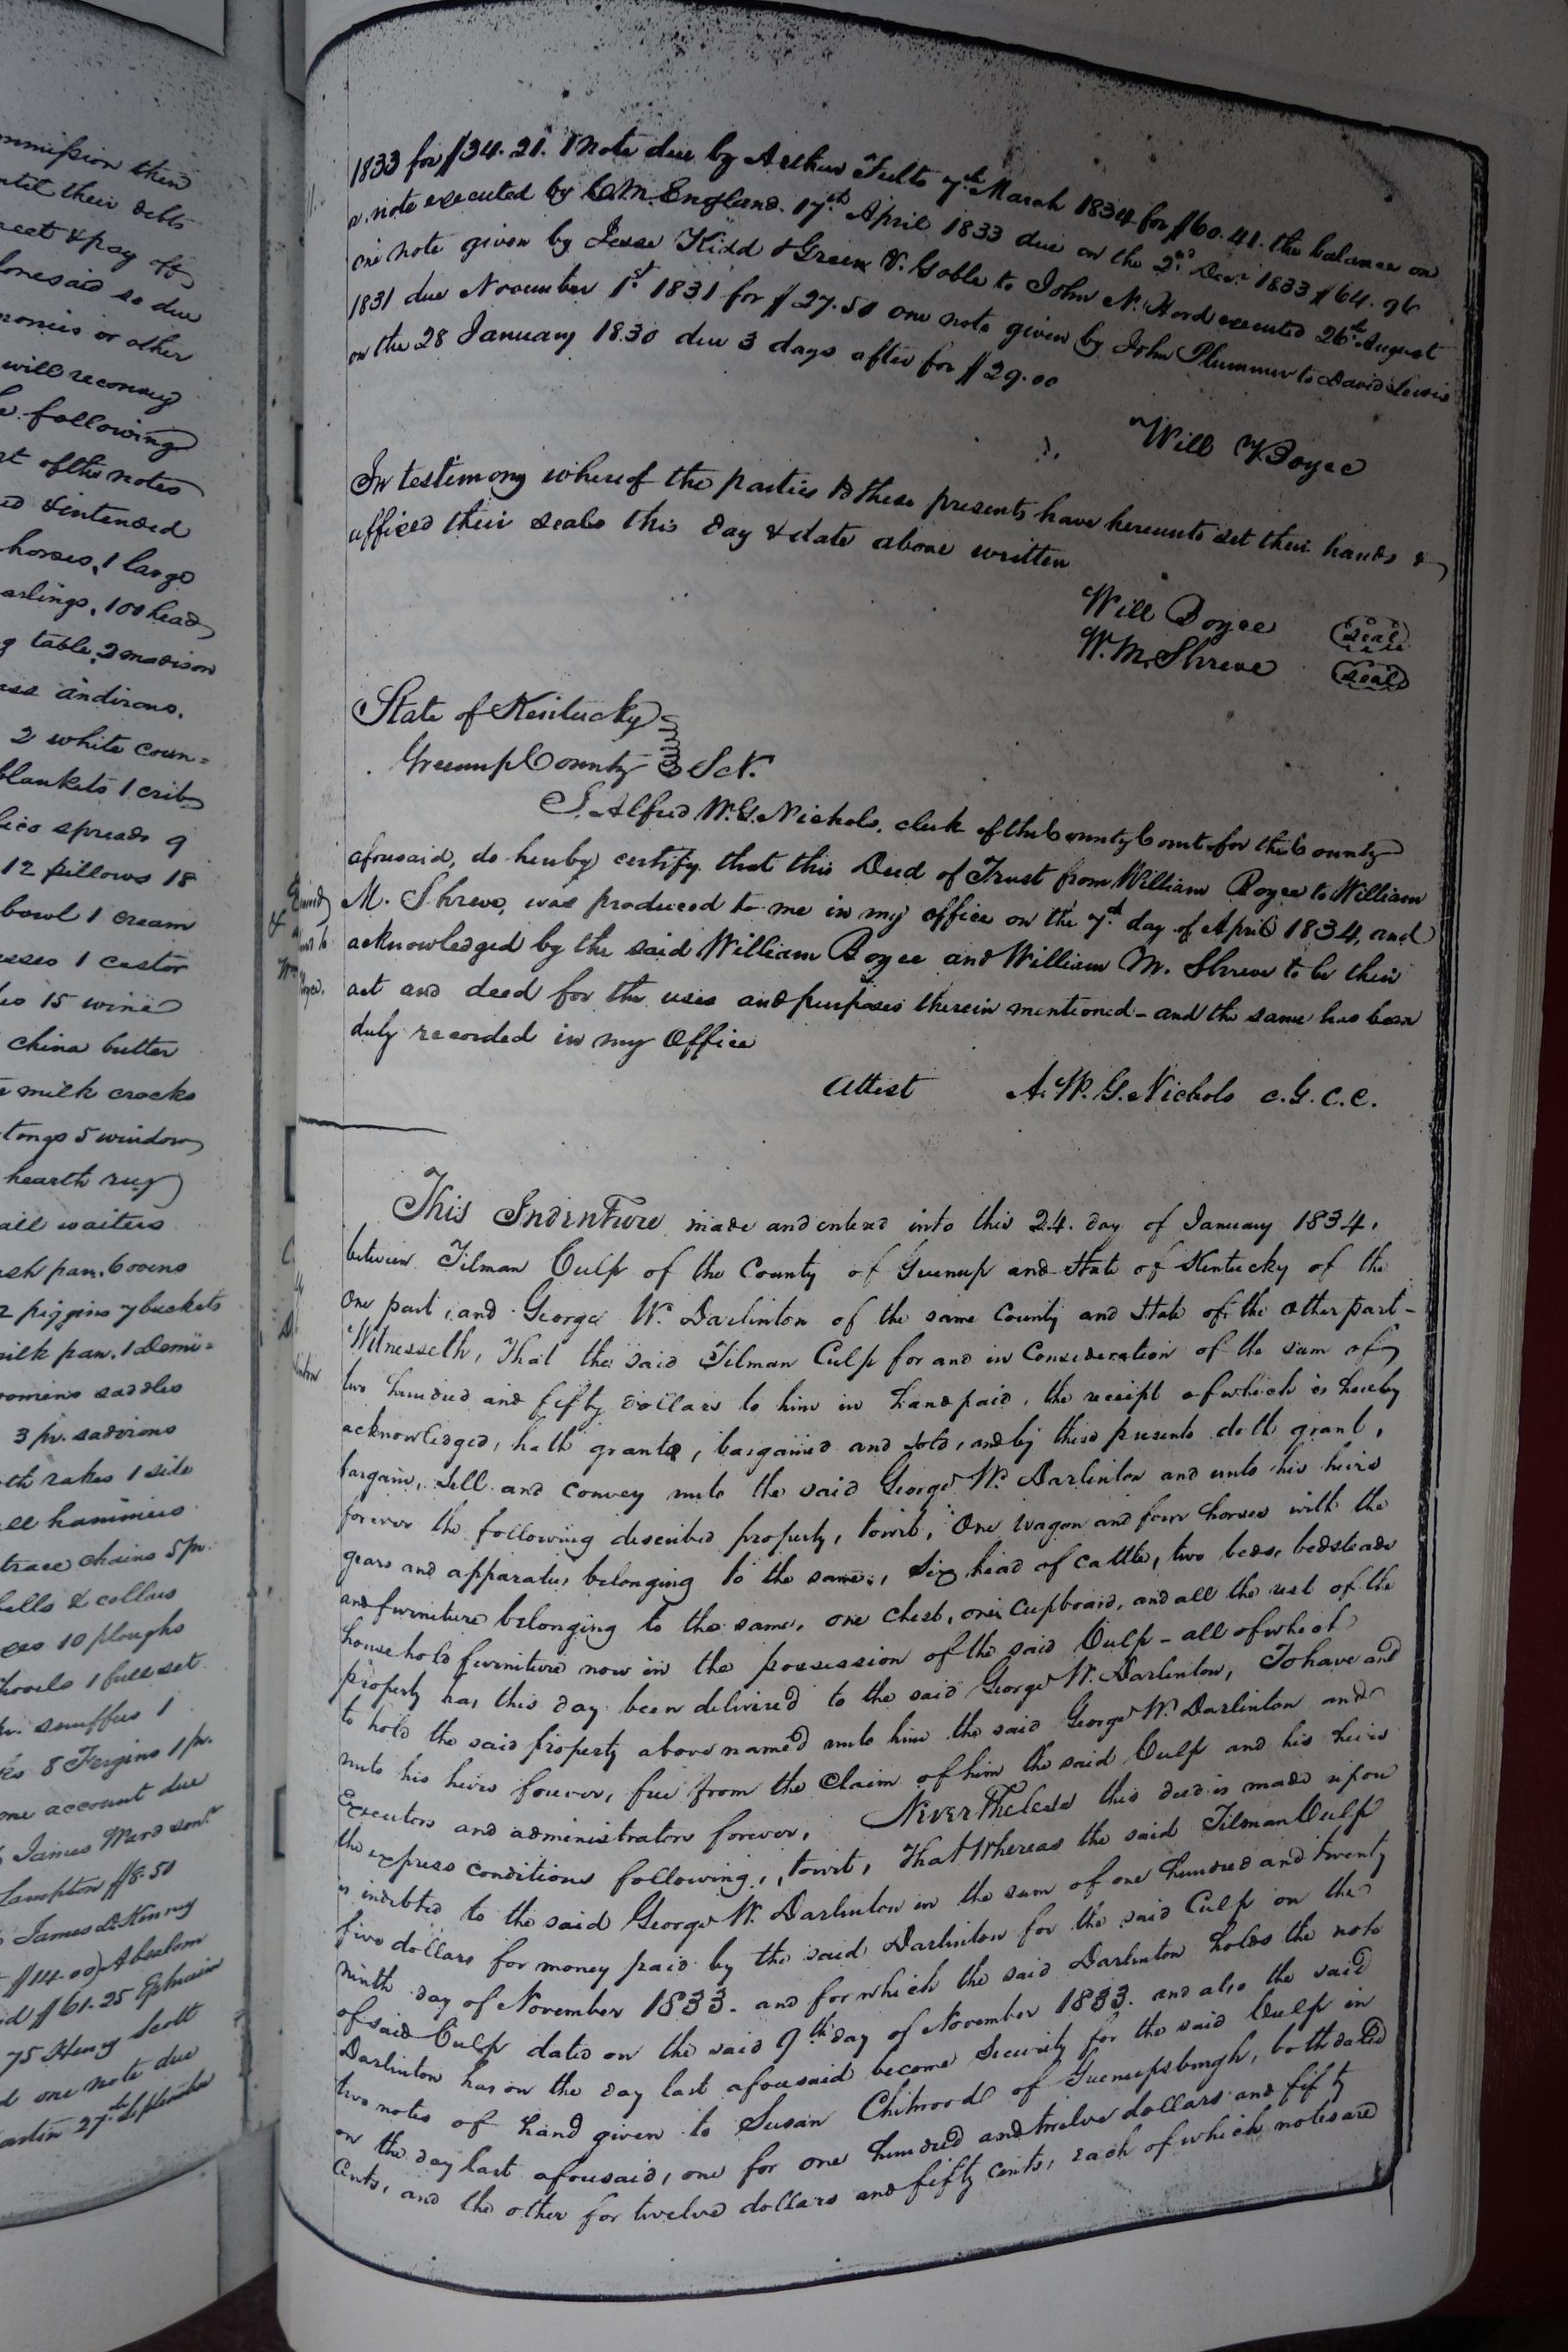 mmission then
ntil their debts
meet & pay off
foresaid so due
monies or other
will reconvey
following
rt of the notes
ed & intended
horses, 1 large
arlings, 100 head
g table, 2 madison
ass andirons.
2 white coun=
blankets 1 crib
lico spreads 9
12 pillows 18
bowl 1 cream
1 castor
15 wine
china butter
milk crocks
tongs 5 window
hearth rug
all waiters
ash pan. 6 ovens
2 piggins 7 buckets
milk pan. 1 demi=
womens saddles
3 pr. sadirons
th rakes 1 side
ll hammers
trace chains 5 pr.
bells & collars
xes 10 ploughs
hovels 1 full set
snuffers 1
8 Fergins 1 pr.
me account due
James Ward senr
Lampton $8.50
James McKinny
$14.00) Absalom
d $61.25 Ephraim
75 Henry Scott
d one note due
artin 27th September
1833 for $34.21. Note due by Arthur Fults 7th March 1834 for $60.41. the balance on
a note executed by C. M. England. 17th April 1833 due on the 2nd Decr 1833 $64.96
one note given by Jesse Kidd & Green V. Goble to John N. Hord executed 26th August
1831 due November 1st 1831 for $27.50 one note given by John Plummer to David Lewis
on the 28 January 1830 due 3 days after for $29.00
Will Boyce
In testimony whereof the parties to these presents have hereunto set their hands &
affixed their seals this day & date above written
Will Boyce seal
W. M. Shreve seal
State of Kentucky
Greenup County Sct.
I, Alfred W. G. Nichols, clerk of the County Court for the County
aforesaid, do hereby certify that this Deed of Trust from William Boyce to William
M. Shreve, was produced to me in my office on the 7th day of April 1834, and
acknowledged by the said William Boyce and William M. Shreve to be their
act and deed for the uses and purposes therein mentioned - and the same has been
duly recorded in my Office
Attest A. W. G. Nichols c.G.C.C.
This Indenture made and entered into this 24. day of January 1834,
between Tilman Culp of the County of Greenup and State of Kentucky of the
One part, and George W. Darlinton of the same County and State of the other part -
Witnesseth, That the said Tilman Culp for and in Consideration of the sum of
two hundred and fifty dollars to him in hand paid, the receipt of which is hereby
acknowledged, hath granted, bargained and sold, and by these presents doth grant,
bargain, sell and convey unto the said George W. Darlinton and unto his heirs
forever the following described property, towit, One wagon and four horses with the
gears and apparatus belonging to the same, six head of cattle, two beds, bedsteads
and furniture belonging to the same, one chest, one cupboard, and all the rest of the
household furniture now in the possession of the said Culp - all of which
property has this day been delivered to the said George W. Darlinton, To have and
to hold the said property above named unto him the said George W. Darlinton and
unto his heirs forever, free from the Claim of him the said Culp and his heirs
Executors and administrators forever, Nevertheless this deed is made upon
the express conditions following, towit, That Whereas the said Tilman Culp
is indebted to the said George W. Darlinton in the sum of one hundred and twenty
five dollars for money paid by the said Darlinton for the said Culp on the
ninth day of November 1833. and for which the said Darlinton holds the note
of said Culp dated on the said 9th day of November 1833. and also the said
Darlinton has on the day last aforesaid become Security for the said Culp in
two notes of hand given to Susan Chitwood of Greenupsburgh, both dated
on the day last aforesaid, one for one hundred and twelve dollars and fifty
Cents, and the other for twelve dollars and fifty cents, each of which notes are